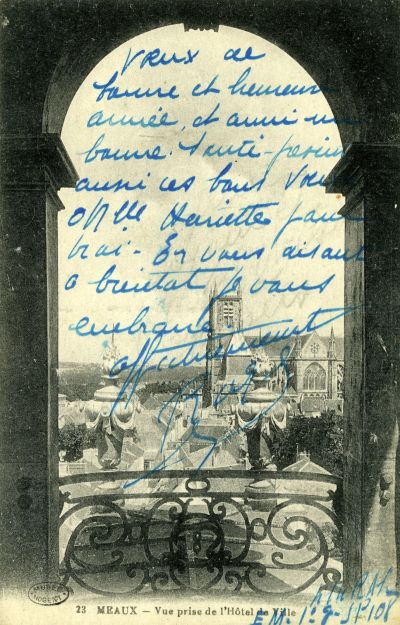 Vœux de
bonne et heureuse
année, et aussi un
bonne Santé
aussi ces bons Vœux
Mlle Hariette
vrai - En vous disant
a bientot Je vous
embrasse
affectueusement
23 MEAUX — Vue prise de l'Hôtel de Ville
MUSÉE NOGENT